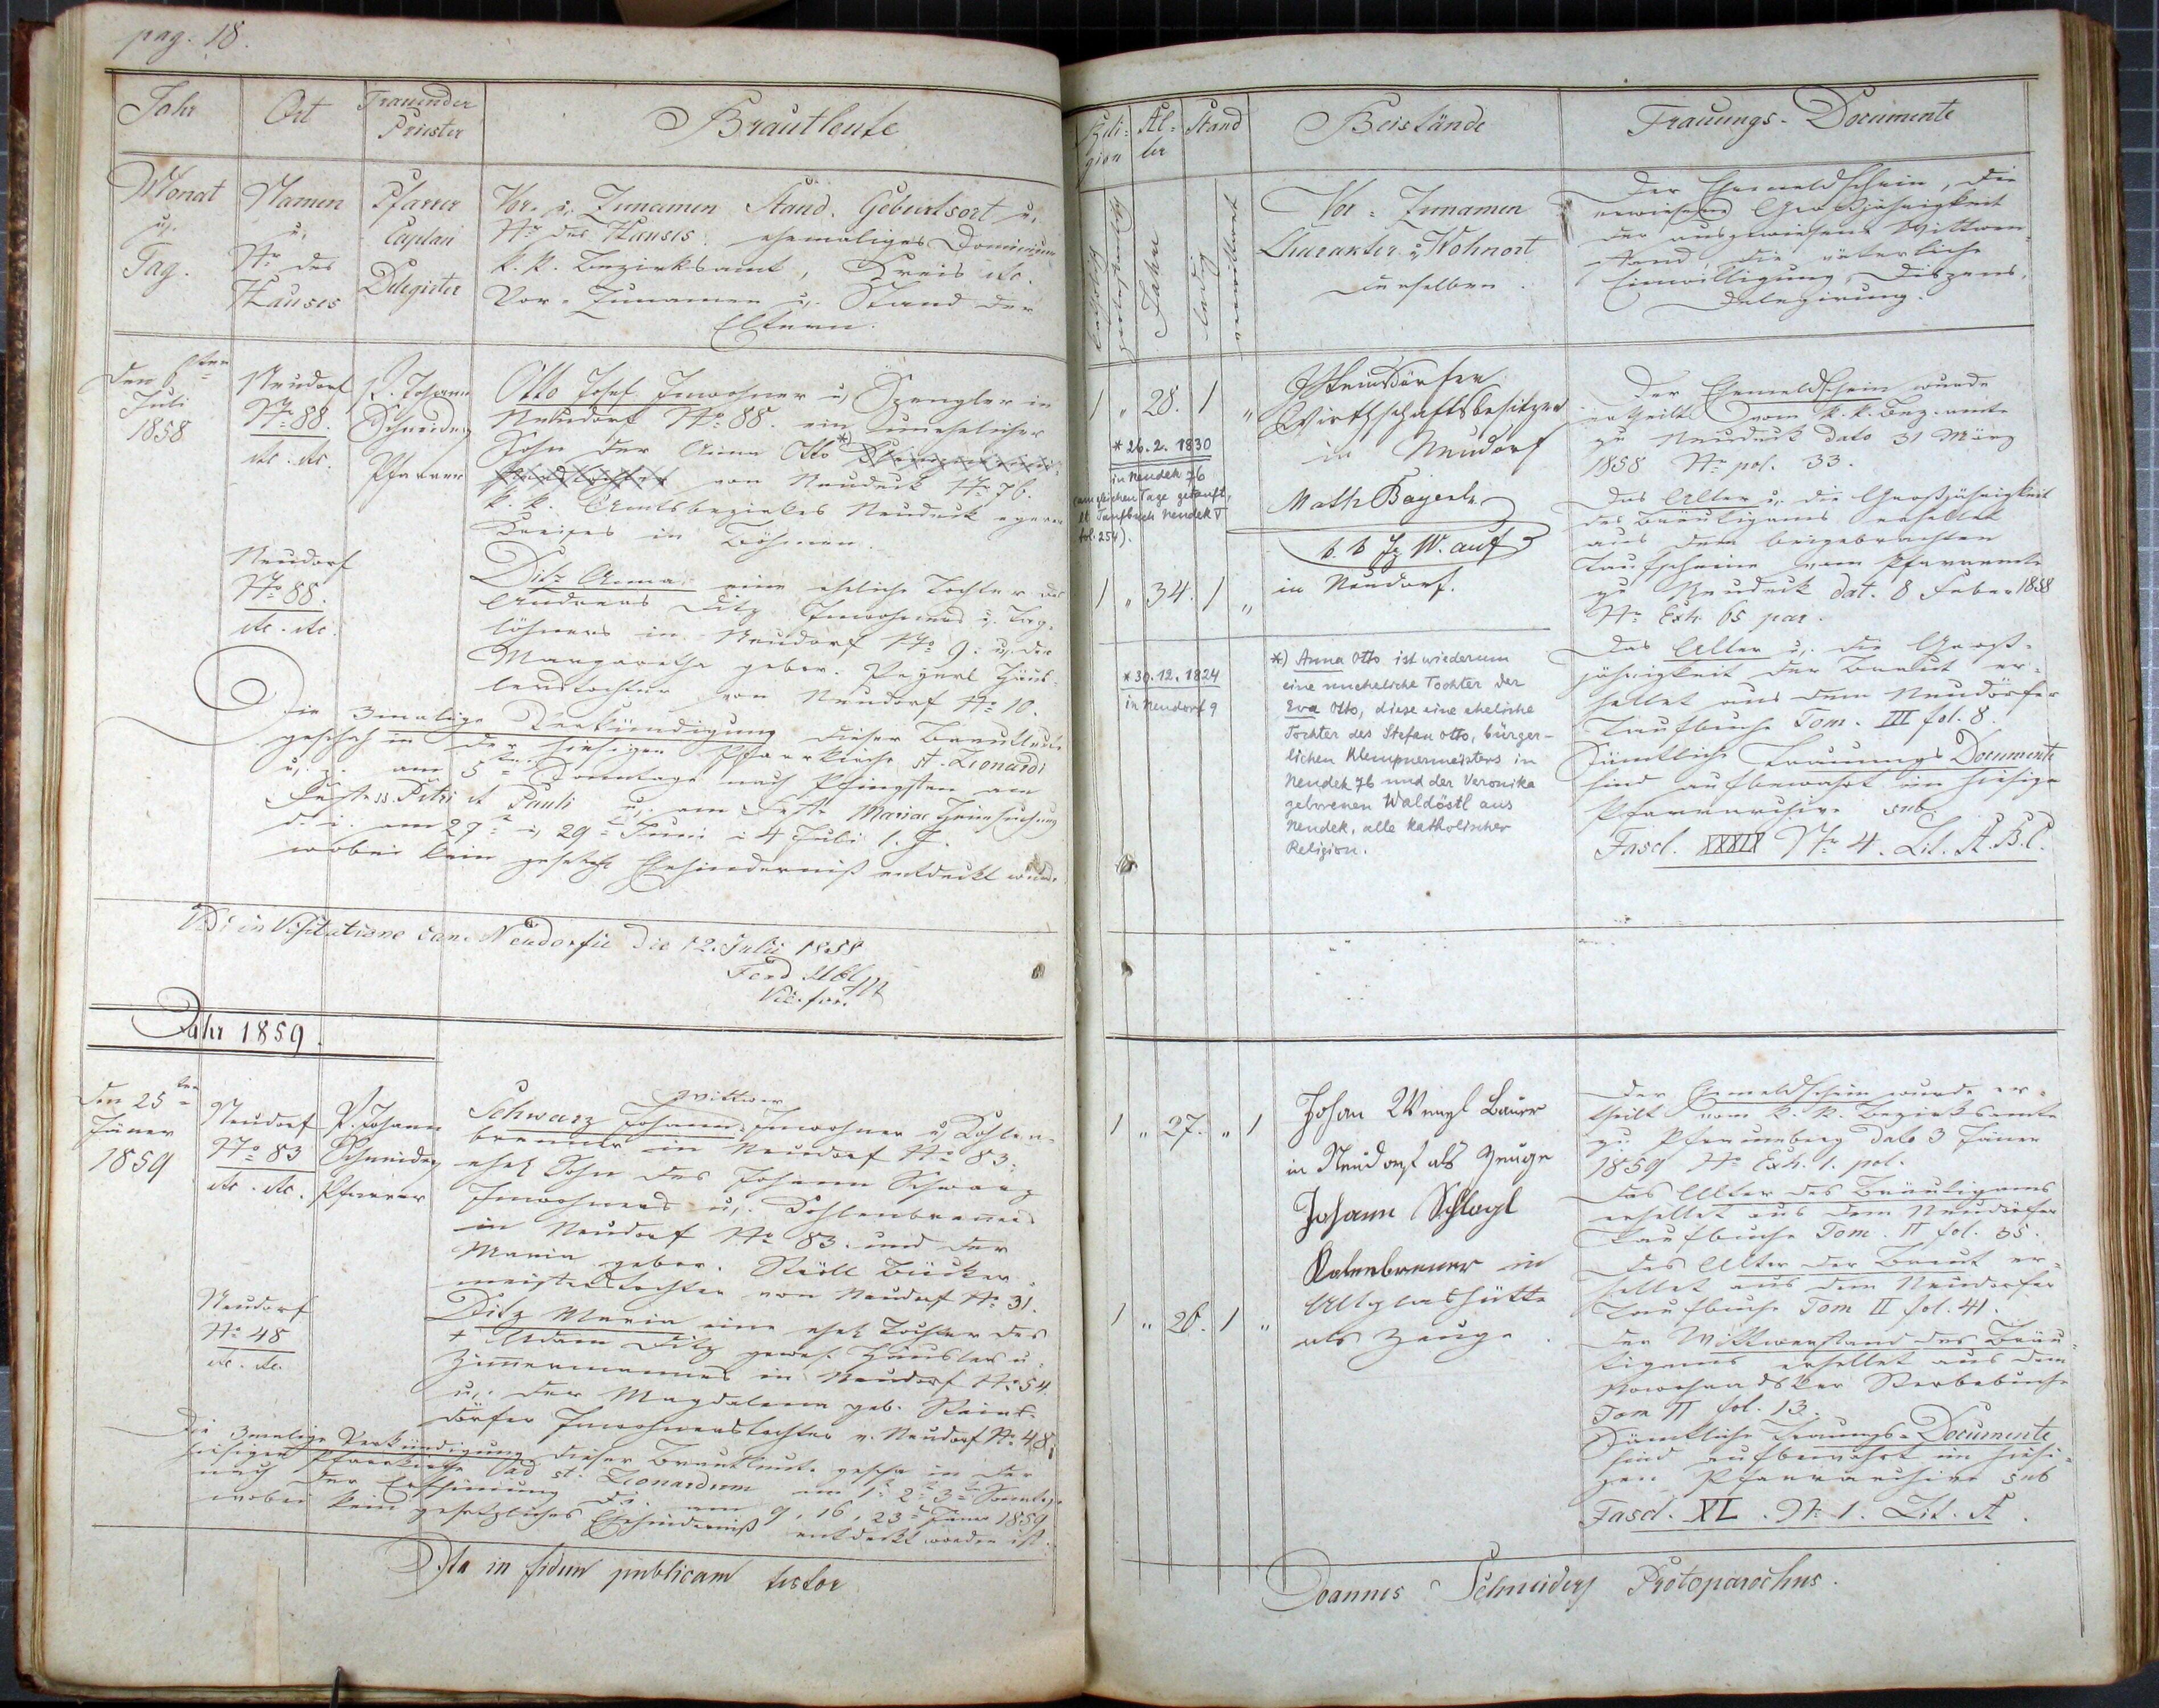 pag. 18.
Jahr
Ort
Trauender
Priester
Brautleute
Monat
u.
Tag.
Namen
u.
Nr. des
Hauses
Pfarrer
Caplan
Delegirter
Vor- u. Zunamen Stand. Geburtsort u.
Nr. des Hauses. ehemaliges Dominium
k. k. Bezirksamt, Kreis etc.
Vor- Zunamen u. Stand der
Eltern.
den 6ten
Juli
1858
Neudorf
No 88.
etc. etc.
P. Johann
Schneider
Pfarrer
Otto Josef Inwohner u. Spengler in
Neudorf No 88. ein unehelicher
Sohn der Anna Otto *)
von Neudeck No 76.
k. k. Amtsbezirkes Neudeck egerer
Kreises in Böhmen.
Neudorf
No 88.
etc. etc.
Ditz Anna eine eheliche Tochter des
Andreas Ditz Inwohners u. Tag-
löhners in Neudorf No 9. u. der
Margaretha gebor. Payerl Häus-
lerstochter von Neudorf No 10.
Die 3malige Verkündigung dieser Brautleute
geschah in der hiesigen Pfarrkirche St. Leonardi
u. z. am 5ten Sonntage nach Pfingsten am
Feste SS. Petri et Pauli u. am Feste Mariae Heimsuchung
d. i. am 27. u. 29. Juni u. 4 Juli l. J.
wobei kein gesetzl. Ehehinderniß entdeckt wurde.
Vidi in Visitatione can. Neudorfii die 12. Julii 1858
Ferd
Vic. for.
Jahr 1859.
den 25ten
Jäner
1859
Neudorf
No 83
etc. etc.
P. Johann
Schneider
Pfarrer
Wittwer
Schwarz Johann, Inwohner u. Kohlen-
brenner in Neudorf No 83.
ehel. Sohn des Johann Schwarz
Inwohners u. Kohlenbrenners
in Neudorf No 83. und der
Maria gebor. Bäcker-
meisterstochter von Neudorf No 31.
Neudorf
No 48
etc. etc.
Ditz Maria eine ehel. Tochter des
+ Adam Ditz gewes. Häuslers u.
Zimmermannes in Neudorf No 54.
u. der Magdalena geb. Steins-
dörfer Inwohnerstochter v. Neudorf No 48.
Die 3malige Verkündigung dieser Brautleute geschah in der
hiesigen Pfarrkirche ad St. Leonardum am 1. 2. 3. Sonntage
nach der Erscheinung d. i. am 9, 16, 23. Jäner 1859
wobei kein gesetzliches Ehehinderniß entdeckt worden ist.
Ita in fidem publicam testor
Reli-
gion
Al-
ter
Stand
Beistände
Trauungs-Documente
katholisch
protestantisch
Jahre
ledig
verwittwet
Vor- Zunamen
Charakter u. Wohnort
derselben.
Der Ehemeldschein, die
erwiesene Großjährigkeit
der ausgewiesene Wittwen-
stand die väterliche
Einwilligung, Dispens,
Delegirung.
1 " 28. 1 "
* 26.2.1830
in Neudek 76
(am gleichen Tage getauft,
lt. Taufbuch Neudek V
fol. 254).
Wirthschaftsbesitzer
in Neudorf
Math Bayerl
in Neudorf.
Der Ehemeldschein wurde
ertheilt vom k. k. Bez. amte
zu Neudeck dato 31 März
1858 No pol. 33.
Das Alter u. die Großjährigkeit
des Bräutigams erhellet
aus dem beigebrachten
Taufscheine vom Pfarramte
zu Neudeck dat. 8 Feber 1858
No Exh. 65 par.
1 " 34. 1 "
* 30.12.1824
in Neudorf 9
*) Anna Otto ist wiederum
eine uneheliche Tochter der
Eva Otto, diese eine eheliche
Tochter des Stefan Otto, bürger-
lichen Klempnermeisters in
Neudek 76 und der Veronika
geborenen Waldöstl aus
Neudek, alle katholischer
Religion.
Das Alter u. die Groß-
jährigkeit der Braut er-
hellet aus dem Neudörfer
Taufbuche Tom. III fol. 8.
Sämtliche Trauungs Documente
sind aufbewahrt im hiesigen
Pfarrarchive sub
Fasd. XXXIX No 4. Lit. A. B. C.
1 " 27. " 1
Johan Wenzl Bauer
in Neudorf als Zeuge
Johann Schlogl
Kolenbrener in
Altglashütte
als Zeuge.
1 " 26. 1 "
Der Ehemeldschein wurde er-
theilt vom k. k. Bezirksamte
zu Pfraumberg dato 3 Jäner
1859 No Exh. 1. pol.
Das Alter des Bräutigams
erhellet aus dem Neudörfer
Taufbuche Tom. II fol. 35.
Das Alter der Braut er-
hellet aus dem Neudorfer
Taufbuche Tom II fol. 41.
Der Wittwerstand des Bräu-
tigams erhellet aus dem
Sterbebuche
Tom II fol. 13.
Sämtliche Trauungs-Documente
sind aufbewahrt im hiesi-
gen Pfarrarchive sub
Fasd. XL. No 1. Lit. A.
Joannes Schneider Protoparochus.